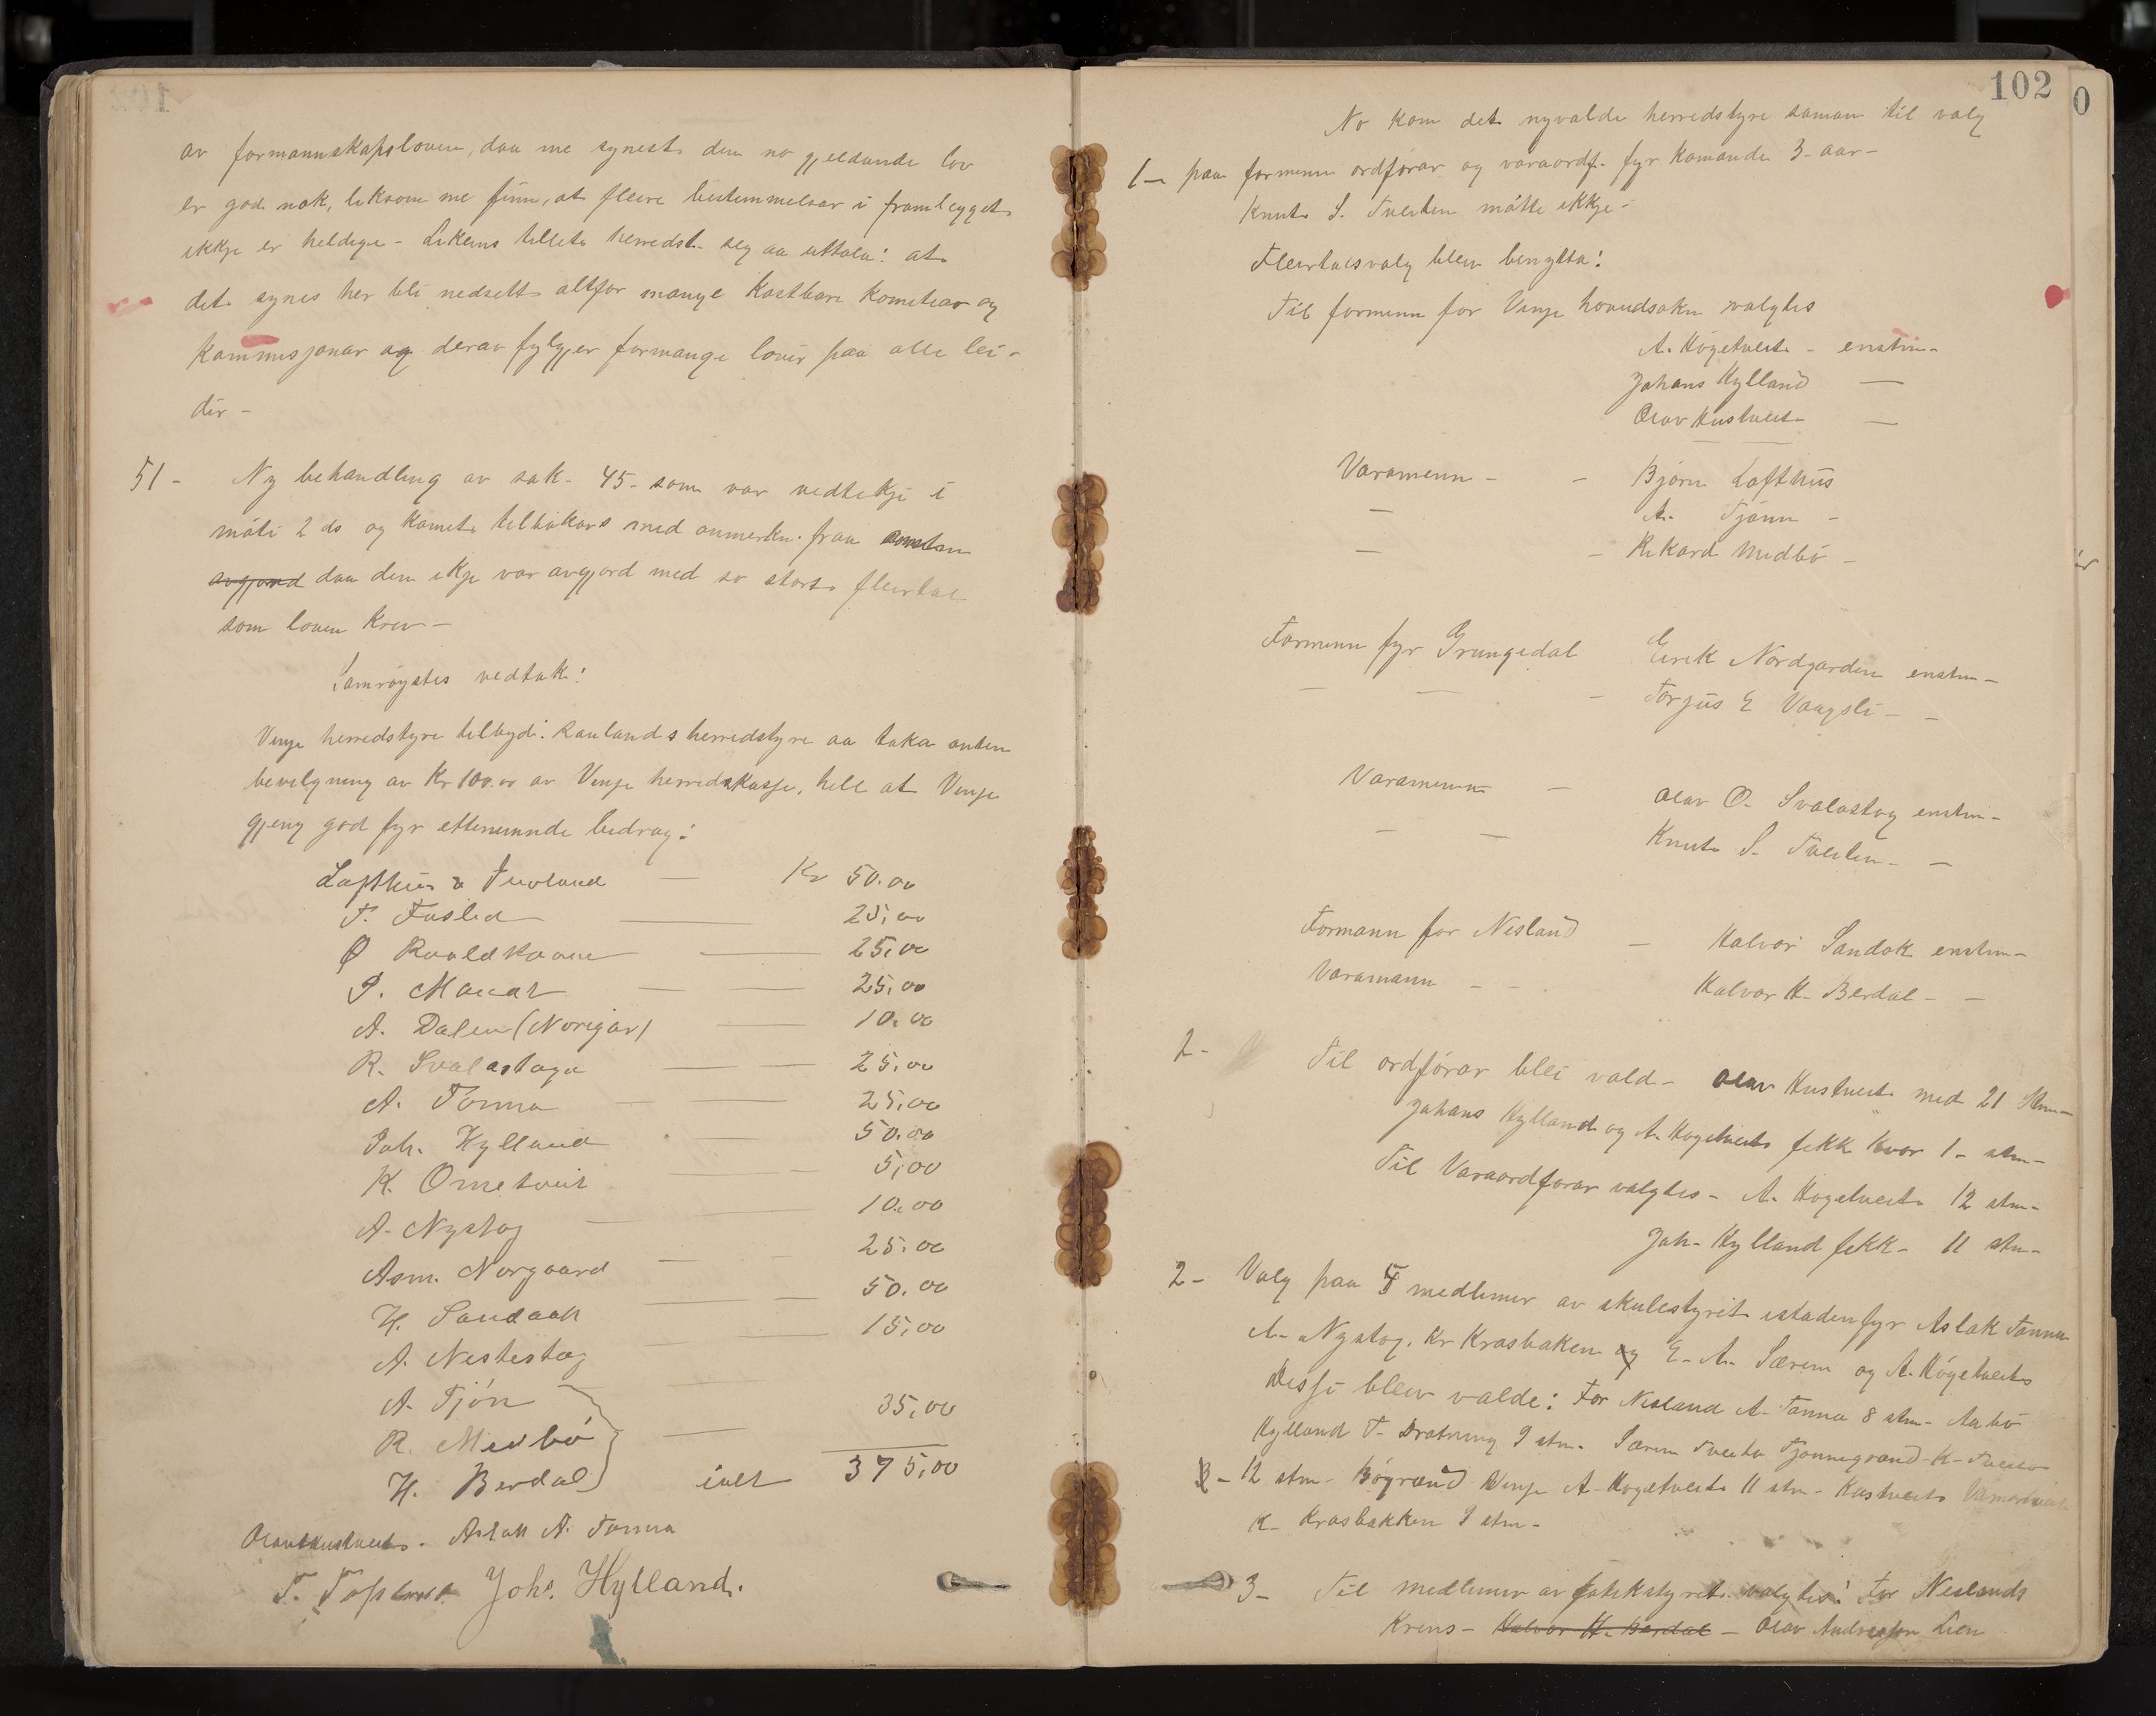 av formannskapsloven, daa me synest den no gjeldande lov
er god nok, liksom me finn, at fleire bestemmelsar i framlegget
ikkje er heldige - Likeins tillet herredst. seg aa uttala: at
det synes her bli nedsett altfor mange kostbare komitear og
kommisjonar og derav fylgjer formange lover paa alle lei-
der -
51 - Ny behandling av sak - 45 - som var vedtekje i
møti 2 ds og komet tilbakars med anmerkn. fraa
avgjord daa den ikje var avgjord med so stort fleirtal
som loven krev -
Samrøystes vedtak:
Vinje herredstyre tilbyd: Raulands herredstyre aa taka anten
bevilgning av Kr 100.00 av Vinje herredskasse, hell at Vinje
gjeng god fyr ettenemnde bedrag:
Lofthus & - Kr 50.00
T. 25,00
O 25,00
25,00
A. Dalen (Norigar) 10.00
R. Svalastoga 25.00
A. Tonna 25,00
Joh. Hylland 50.00
K. Ornetveit 5,00
A. Nystog 10.00
Asm. Norgaard 25.00
H. Sandaak 50.00
A. Nestestog 15,00
A. Tjón
R. Medbó 35,00
H. Berdal ialt 375,00
Olav Kustveit. Aslak A. Tonna
T. Johs. Hylland.
102
0
No kom det nyvalde herredstyre saman til valg
1- paa formenn ordførar og varaordf. fyr komande 3-aar-
Knut S. Tveiten møtte ikkje -
Fleirtalsvalg blev benytta:
Til formenn for Vinje hovudsokn valgtes
A. Høgetveit - enstm-
Johans Hylland —
Olav Kustveit —
Varamenn - - Bjørn Lofthus
— A. Tjønn -
— - Rikard Medbø -
Formenn fyr Grungedal Eirik Nordgarden enstm-
— — - Torjus E Vaagsli - -
Varamenn - Olav O. Svalastog enstm-
- — Knut S. Tveiten - -
Formann for Nesland - Halvor Sandok enstm-
Varamann - - Halvor H. Berdal - -
2- Til ordførar blei vald - Olav Kustveit med 21 stm-
Johans Hylland og A. Høgetveit fekk kvar 1 - stm-
Til Varaordførar valgtes - A. Hogetveit 12 stm-
Joh- Hylland fekk - 11 stm-
2- Valg paa 5 medlemer av skulestyret istadenfyr Aslak Tonna
A. Nystog, Kr Krosbaken og E. A. Særen og A. Høgetveit
Disse blev valde: For Nesland A. Tonna 8 stm-
Hylland T. 9 stm. Særen Tveito Tjønnegrend K.
3 - 12 stm - Bøgrend Vinje A. Hogetveit 11 stm - Kustveit
K. Krosbakken 9 stm-
3- Til medlemer av valgtes: For Neslands
Krins - Halvor H. Berdal - Olav Andresson Lien